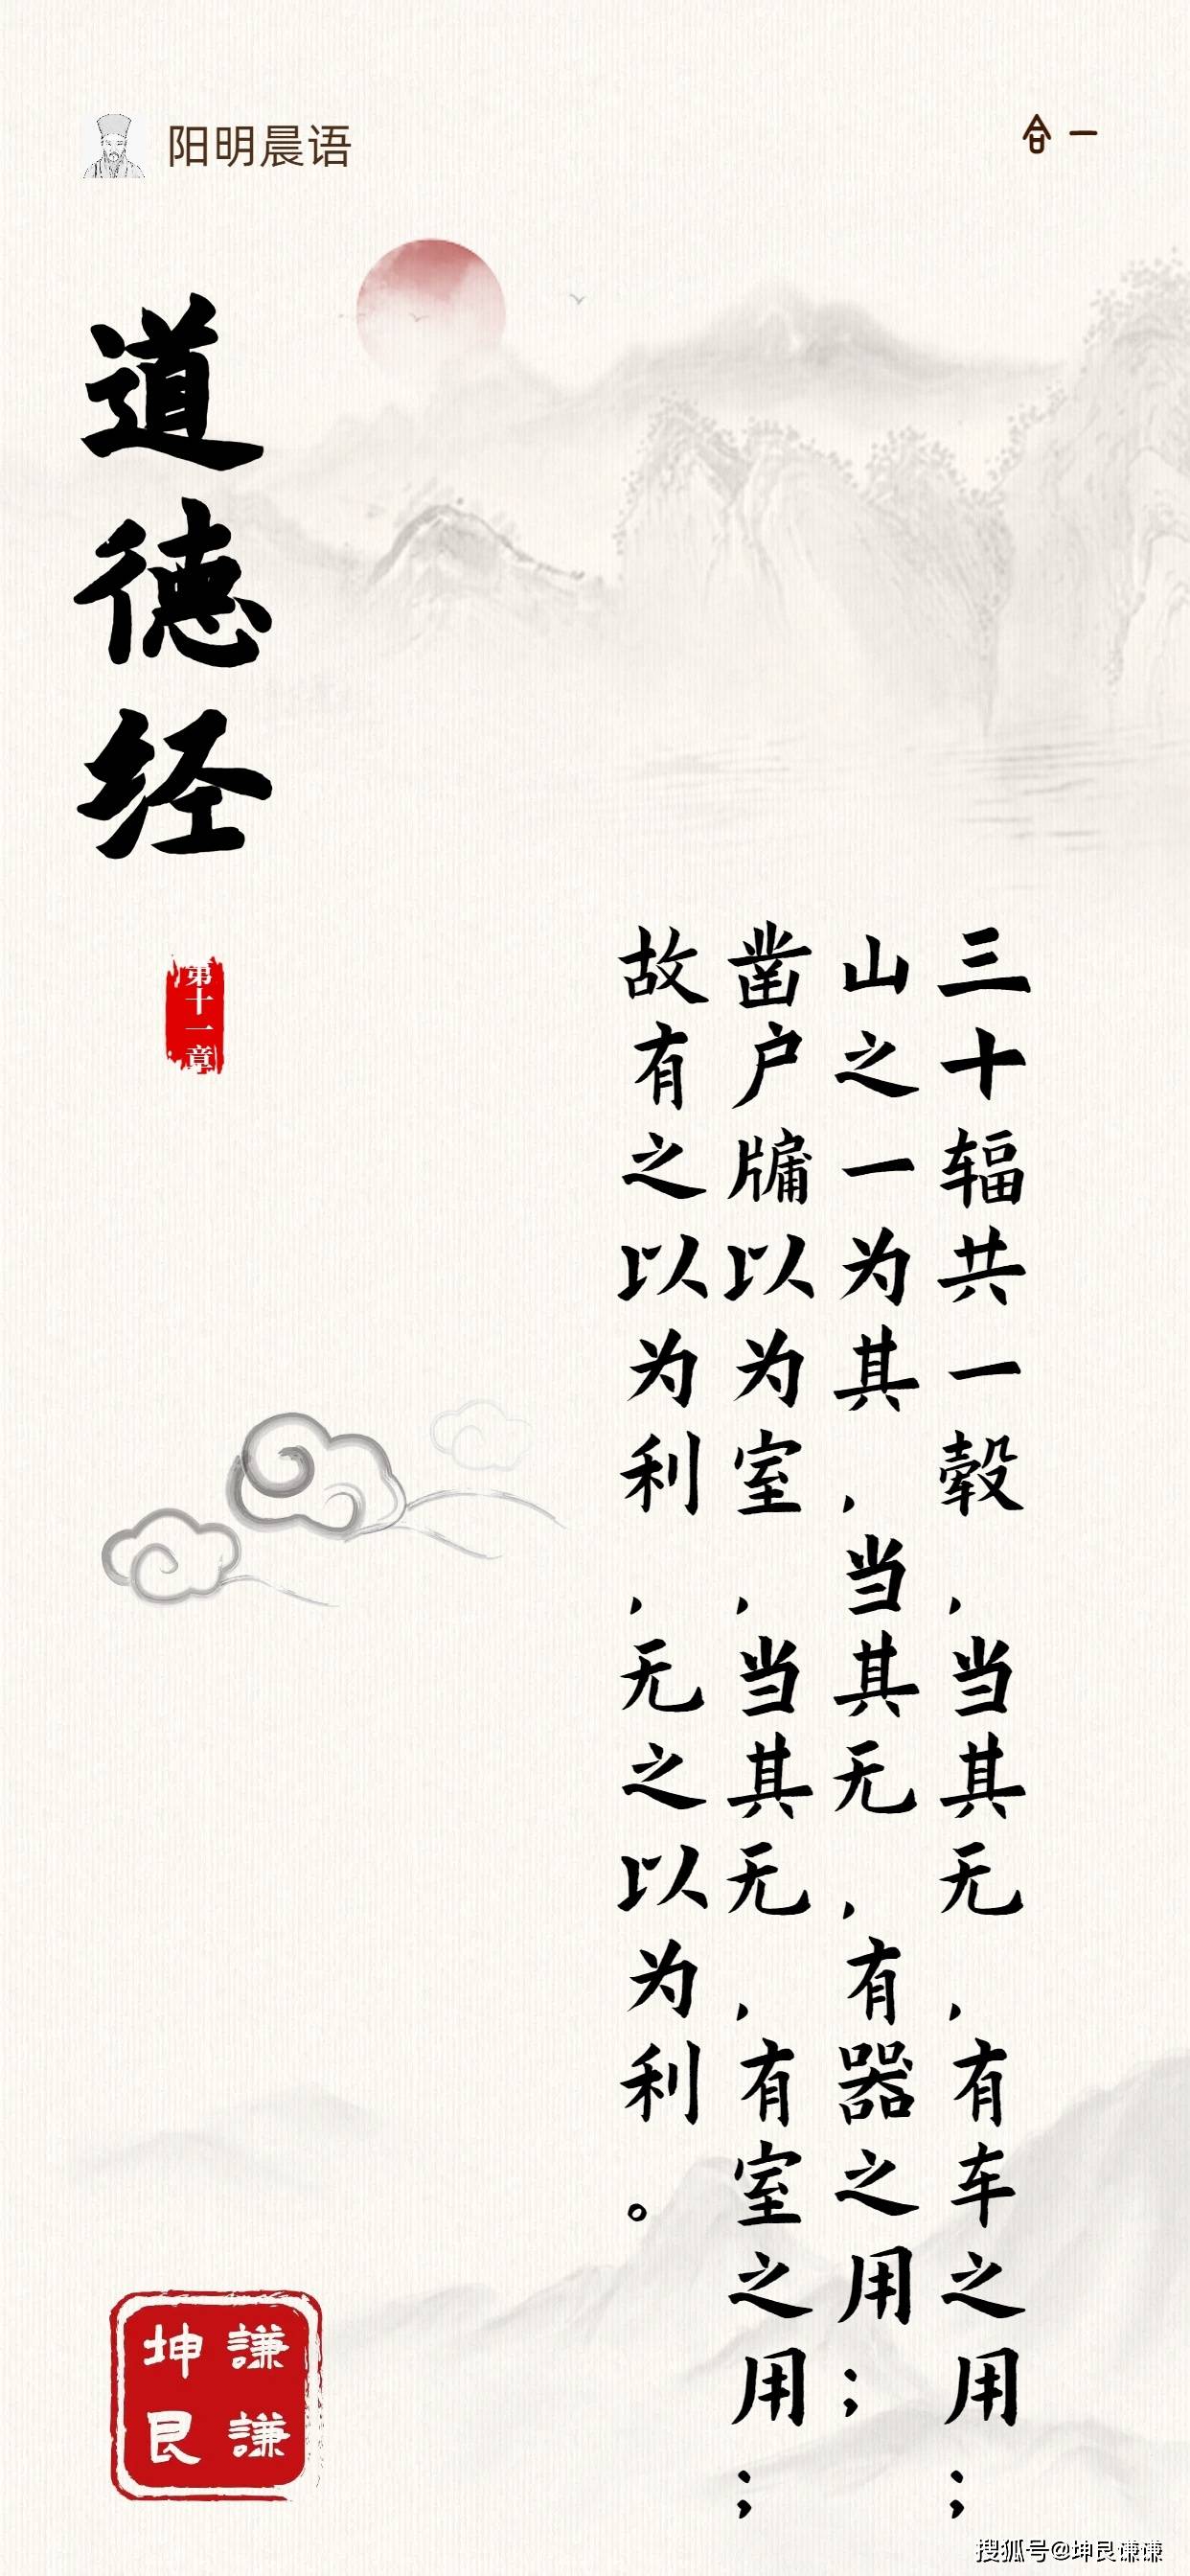 阳明晨语
合一
道德经
第十一章
三十辐共一毂，当其无，有车之用；
山之一为其，当其无，有器之用；
凿户牖以为室，当其无，有室之用；
故有之以为利，无之以为利。
坤艮
謙謙
搜狐号@坤艮谦谦